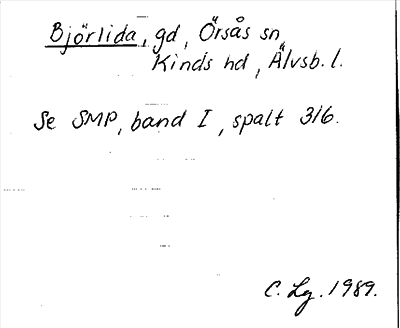 Björlida, gd, Örsås sn,
Kinds hd, Älvsb. l.
Se SMP, band I, spalt 316.
C. Lg. 1989.